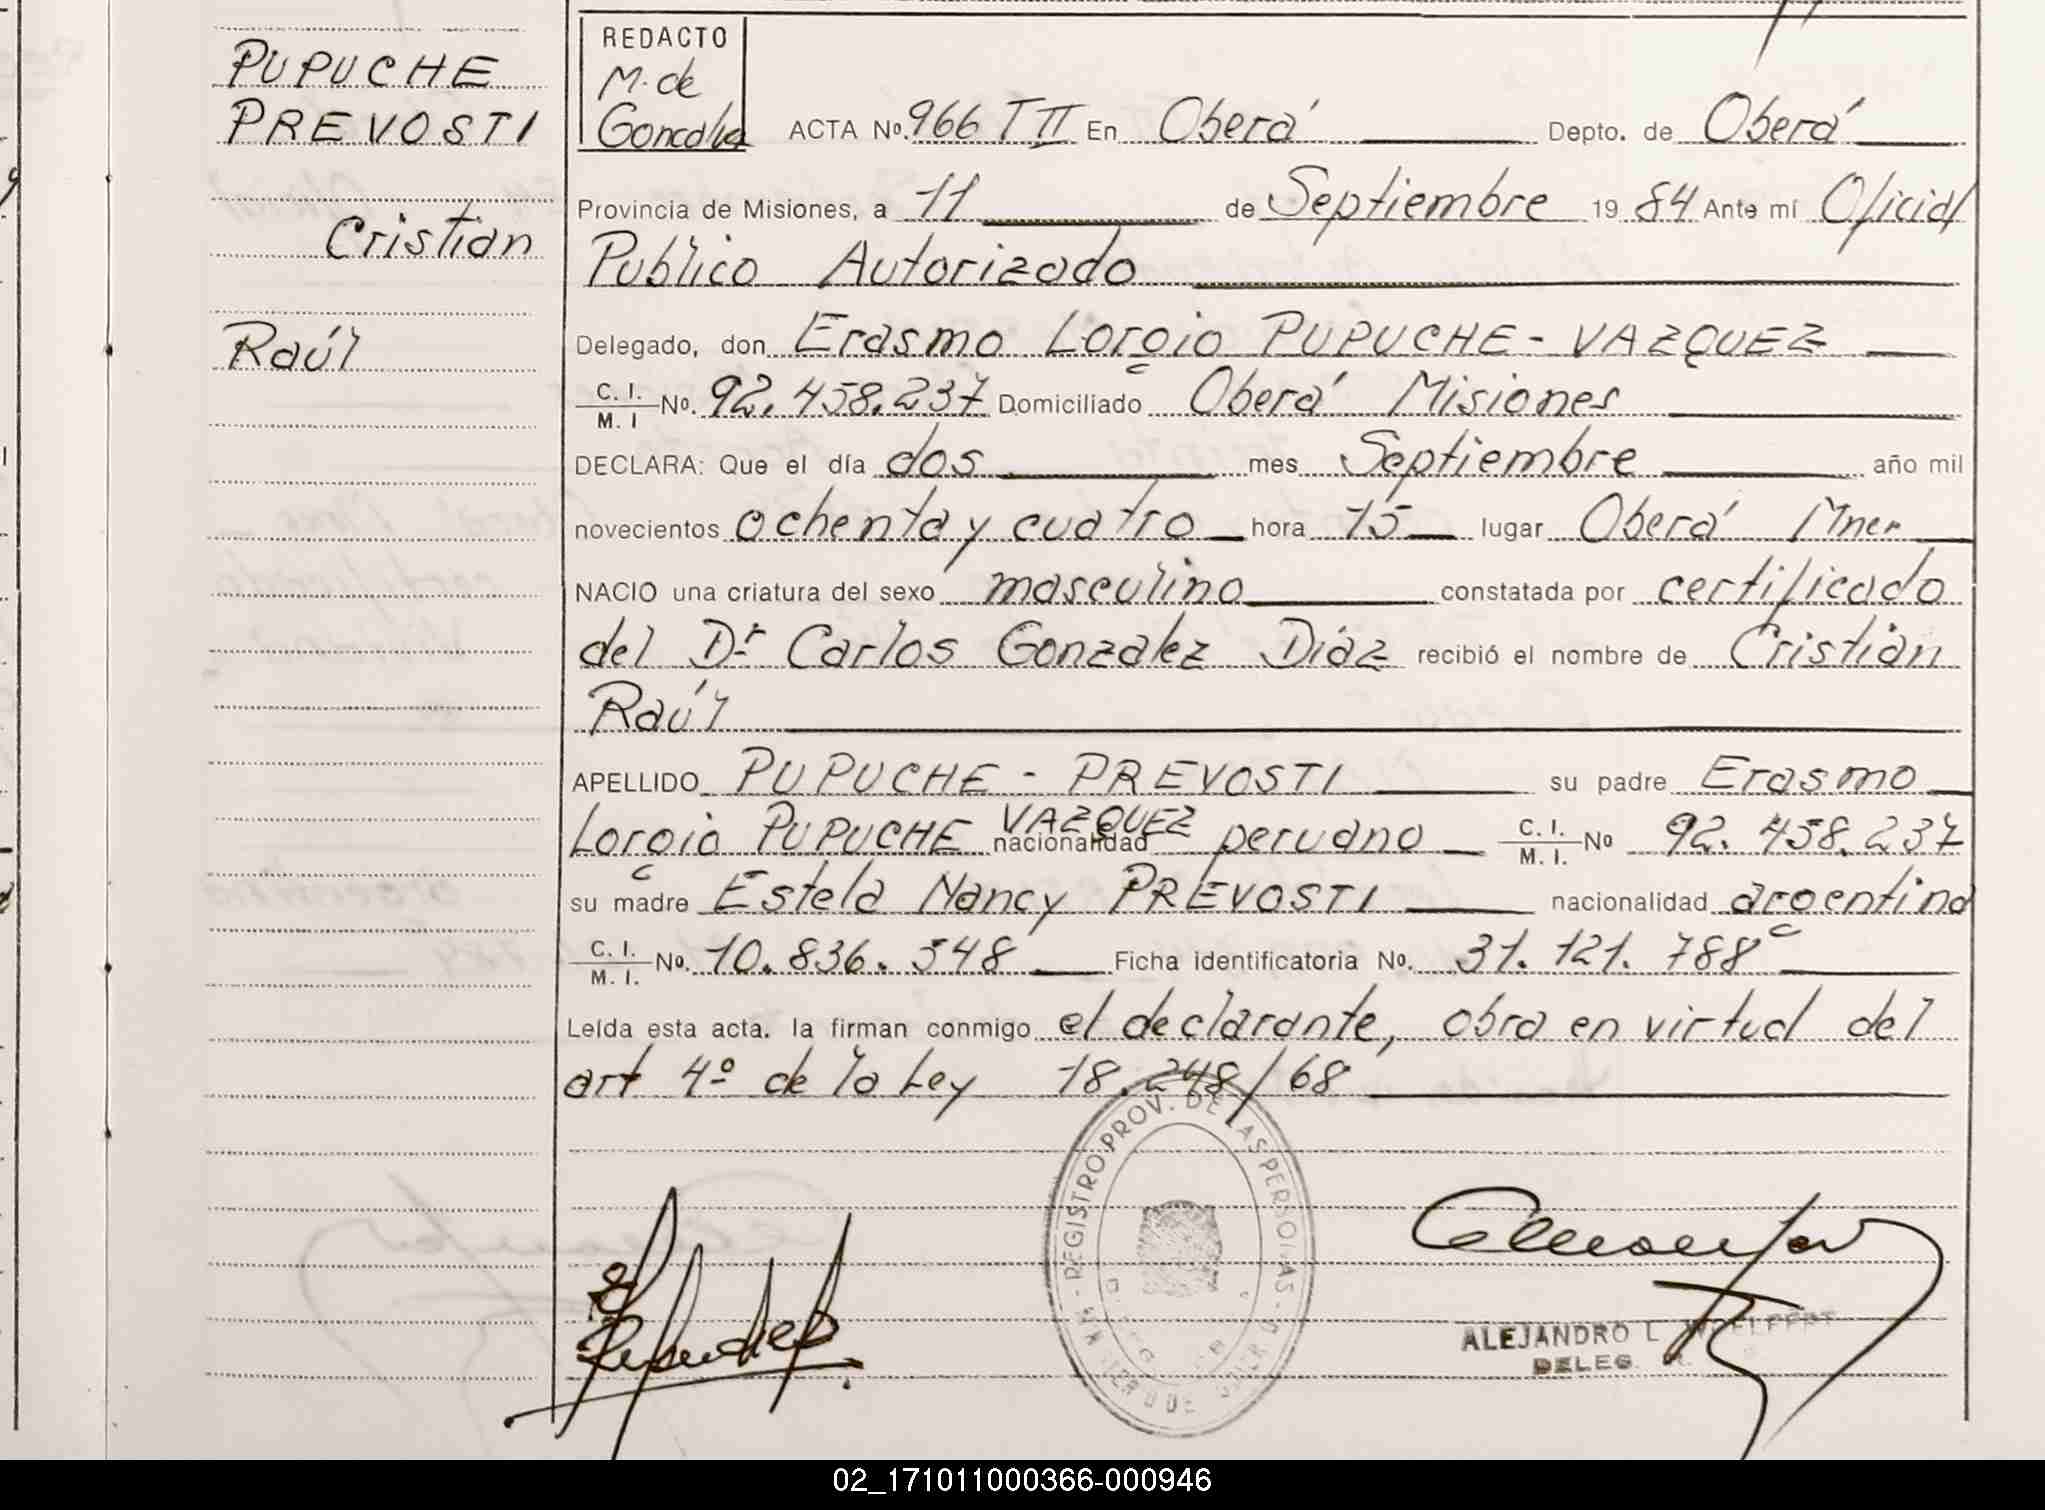 PUPUCHE
PREVOSTI
Cristian
Raúl
REDACTO
M. de
Goncalves
ACTA No. 966 T II En Oberá Depto. de Oberá
Provincia de Misiones, a 11 de Septiembre 19 84 Ante mí Oficial
Publico Autorizado
Delegado, don Erasmo Lorgio PUPUCHE - VAZQUEZ
C. I.
M. I No. 92.458.237 Domiciliado Oberá Misiones
DECLARA: Que el día dos mes Septiembre año mil
novecientos ochenta y cuatro hora 15 lugar Oberá Mnes
NACIO una criatura del sexo masculino constatada por certificado
del Dr Carlos Gonzalez Diáz recibió el nombre de Cristián
Raúl
APELLIDO PUPUCHE - PREVOSTI su padre Erasmo
Lorgio PUPUCHE VAZQUEZ nacionalidad peruano C. I.
M. I. No 92.458.237
su madre Estela Nancy PREVOSTI nacionalidad argentina
C. I.
M. I. No. 10.836.548 Ficha identificatoria No. 31.121.788
Leída esta acta. la firman conmigo el declarante, obra en virtud del
art 4º de la Ley 18.248/68
REGISTRO PROV. DE LAS PERSONAS
ALEJANDRO L. WOELFERT
DELEG.
02_171011000366-000946